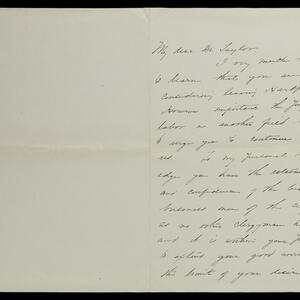 My dear Dr. Taylor.
I very much
to learn that you are
considering leaving Hartf
However important the
labor in another field
to urge you to continue
us. To my personal
edge you have the esteem
and confidence of the
business men of the
as no other clergyman
and it is within your
to extend your good wor
the limit of your desire